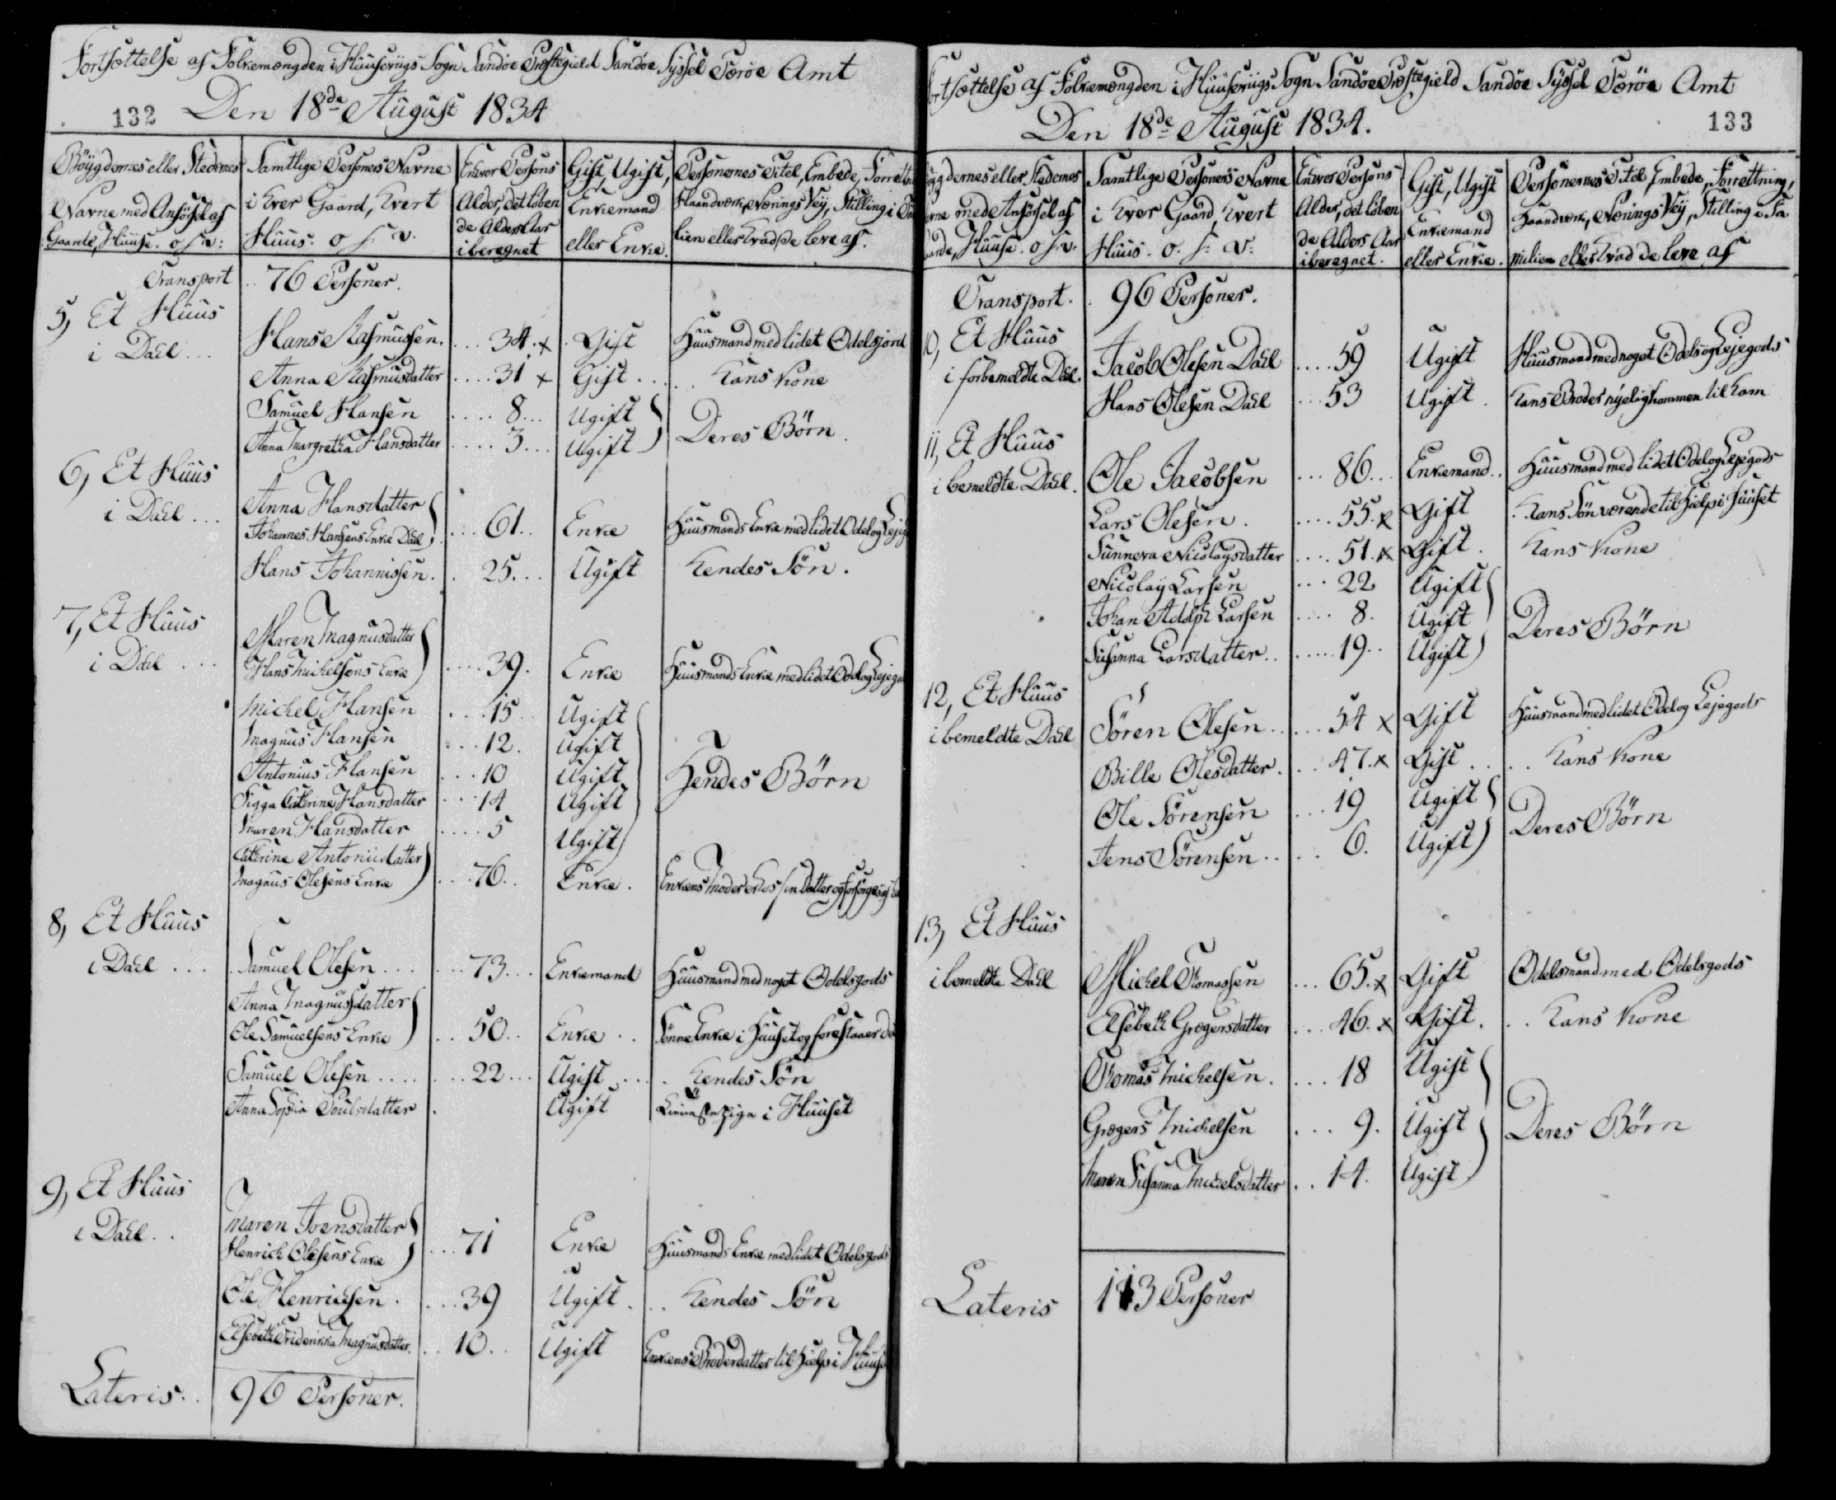 Fortsættelse af Folkemængden i Huuseviigs Sogn Sandöe Præstegield Sandöe Syssel Færöe Amt
132 Den 18de August 1834
Böygdernes eller Stedernes Navne med Anförsel af Gaarde, Huuse. o. s. v:
Samtlige Personers Navne i hver Gaard, hvert Huus. o. s. v.
Enhver Persons Alder, det löbende Alders Aar iberegnet
Gift, Ugift, Enkemand eller Enke.
Personernes Titel, Embede, Forretn Haandværk, Nærings Vej, Stilling i Fa lien eller hvad de leve af.
Transport .. 76 Personer.
5, Et Huus
i Dahl ... Hans Rasmussen. ... 34. x Gift Huusmand med lidet Odelsjord
Anna Rasmusdatter .... 31 x Gift ... Hans Kone
Samuel Hansen .... 8... Ugift
Anna Margretha Hansdatter .... 3... Ugift Deres Börn.
6, Et Huus
i Dahl ... Anna Hansdatter
Johannes Hansens Enke Dahl ... 61.. Enke Huusmands Enke med lidet Odel og Leje
Hans Johannissen. . 25... Ugift Hendes Sön.
7, Et Huus
i Dahl ... Maren Magnusdatter
Hans Michelsens Enke .... 39. Enke Huusmands Enke med lidet Odel og Lejeg
Michel Hansen ... 15 Ugift
Magnus Hansen ... 12. Ugift
Antonius Hansen ... 10 Ugift Hendes Börn
Sigga Cathrine Hansdatter ... 14 Ugift
Maren Hansdatter .... 5 Ugift
Cathrine Antoniidatter
Magnus Olesens Enke ... 76.. Enke. Enkens Moder
8, Et Huus
i Dahl ... Samuel Olesen ... ... 73... Enkemand Huusmand med noget Odelsgods
Anna Magnusdatter
Ole Samuelsens Enke .. 50.. Enke .. Sönne Enke i Huuset og forestaaer d
Samuel Olesen .... ... 22... Ugift ... Hendes Sön
Anna Sophia Poulsdatter . Ugift Tienestepige i Huuset
9, Et Huus
i Dahl .. Maren Joensdatter
Henrich Olesens Enke ... 71 Enke Huusmands Enke med lidet Odelsgods
Ole Henrichsen. ... 39 Ugift. .. Hendes Sön
Elsebeth Friderikka Magnusdatter. .. 10.. Ugift Enkens Broderdatter til Hielp i Huuse
Lateris.. 96 Personer.
Fortsættelse af Folkemængden i Huusevigs Sogn Sandöe Præstegield Sandöe Syssel Færöe Amt
Den 18de August 1834. 133
ygdernes eller Stedernes rne med Anförsel af arde, Huuse. o. s. v.
Samtlige Personers Navne i hver Gaard, hvert Huus. o. s: v:
Enhver Persons Alder, det löbende Alders Aar iberegnet.
Gift, Ugift Enkemand eller Enke.
Personernes Titel Embede, Forretning, Haandværk, Nærings Vej, Stilling i Familien eller hvad de leve af
Transport. . 96 Personer.
10, Et Huus
i forbemeldte Dahl. Jacob Olesen Dahl .... 59 Ugift Huusmand med noget Odels og Lejegods
Hans Olesen Dahl ... 53 Ugift. Hans Broder nyelig kommen til ham
11, Et Huus
i bemeldte Dahl. Ole Jacobsen ... 86... Enkemand.. Huusmand med lidet Odel og Lejegods
Lars Olesen. .... 55. x Gift . Hans Sön værende til Hielp i Huuset
Sunneva Nicolaysdatter .... 51. x Gift. Hans Kone
Nicolay Larsen ... 22 Ugift
Johan Adolph Larsen .... 8. Ugift Deres Börn
Susanna Larsdatter.. ..... 19.. Ugift
12, Et Huus
i bemeldte Dahl Sören Olesen .. .... 54 x Gift Huusmand med lidet Odel og Lejegods
Bille Olesdatter. .. 47. x Gift . .. Hans Kone
Ole Sörensen ... 19 Ugift
Jens Sörensen .. .. 6. Ugift Deres Börn
13, Et Huus
i bemeldte Dahl Michel Thomassen ... 65. x Gift Odelsmand med Odelsgods
Elsebeth Grægersdatter ... 46. x Gift. .. Hans Kone
Thomas Michelsen. .... 18 Ugift
Grægers Michelsen ... 9. Ugift Deres Börn
Maren Susanna Michelsdatter .. 14. Ugift
Lateris 113 Personer